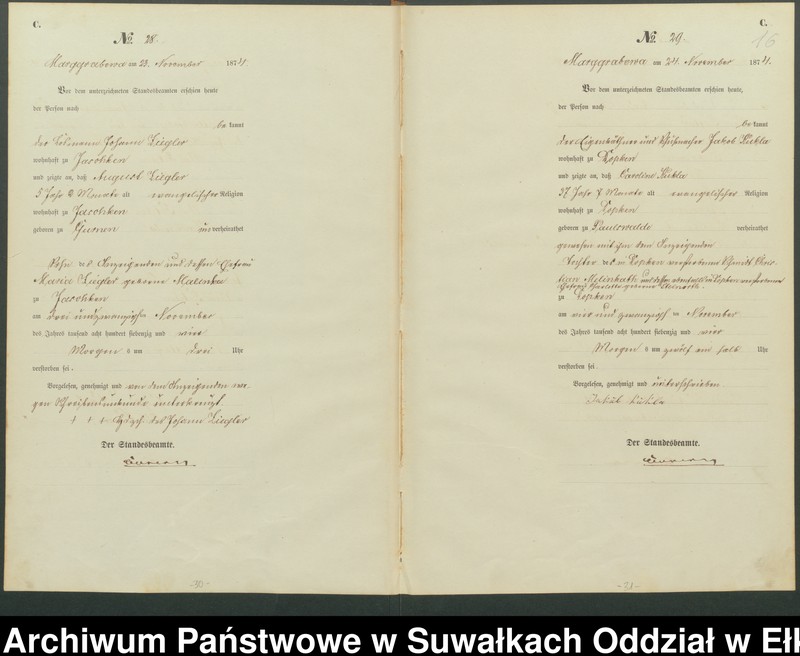 C.
No 28.
Marggrabowa am 23. November 1874.
Vor dem unterzeichneten Standesbeamten erschien heute
der Person nach
be kannt
der Johann Ziegler
wohnhaft zu Jaschken
und zeigte an, daß August Ziegler
5 Jahr Monate alt evangelischer Religion
wohnhaft zu Jaschken
geboren zu un verheirathet
Sohn des Anzeigenden und dessen Ehefrau
Maria Ziegler geborene
zu Jaschken
am drei und zwanzigsten November
des Jahres tausend acht hundert siebenzig und vier
Morgens um drei Uhr
verstorben sei.
Vorgelesen, genehmigt und von dem Anzeigenden we-
gen Schreibensunkunde unterkreuzt
+ + + Hdzch. des Johann Ziegler
Der Standesbeamte.
-30-
C.
16
No 29.
Marggrabowa am 24. November 1874.
Vor dem unterzeichneten Standesbeamten erschien heute,
der Person nach
be kannt
der Eigenkäthner und Jakob
wohnhaft zu
und zeigte an, daß Caroline
57 Jahr Monate alt evangelischer Religion
wohnhaft zu
geboren zu verheirathet
gewesen mit ihm dem Anzeigenden
Tochter des in verstorbenen Schmidt Chris-
tian und dessen ebenfalls in verstorbenen
Ehefrau geborene
zu
am vier und zwanzigsten November
des Jahres tausend acht hundert siebenzig und vier
Morgens um zwölf ein halb Uhr
verstorben sei.
Vorgelesen, genehmigt und unterschrieben
Der Standesbeamte.
-31-
Archiwum Państwowe w Suwałkach Oddział w Ełk